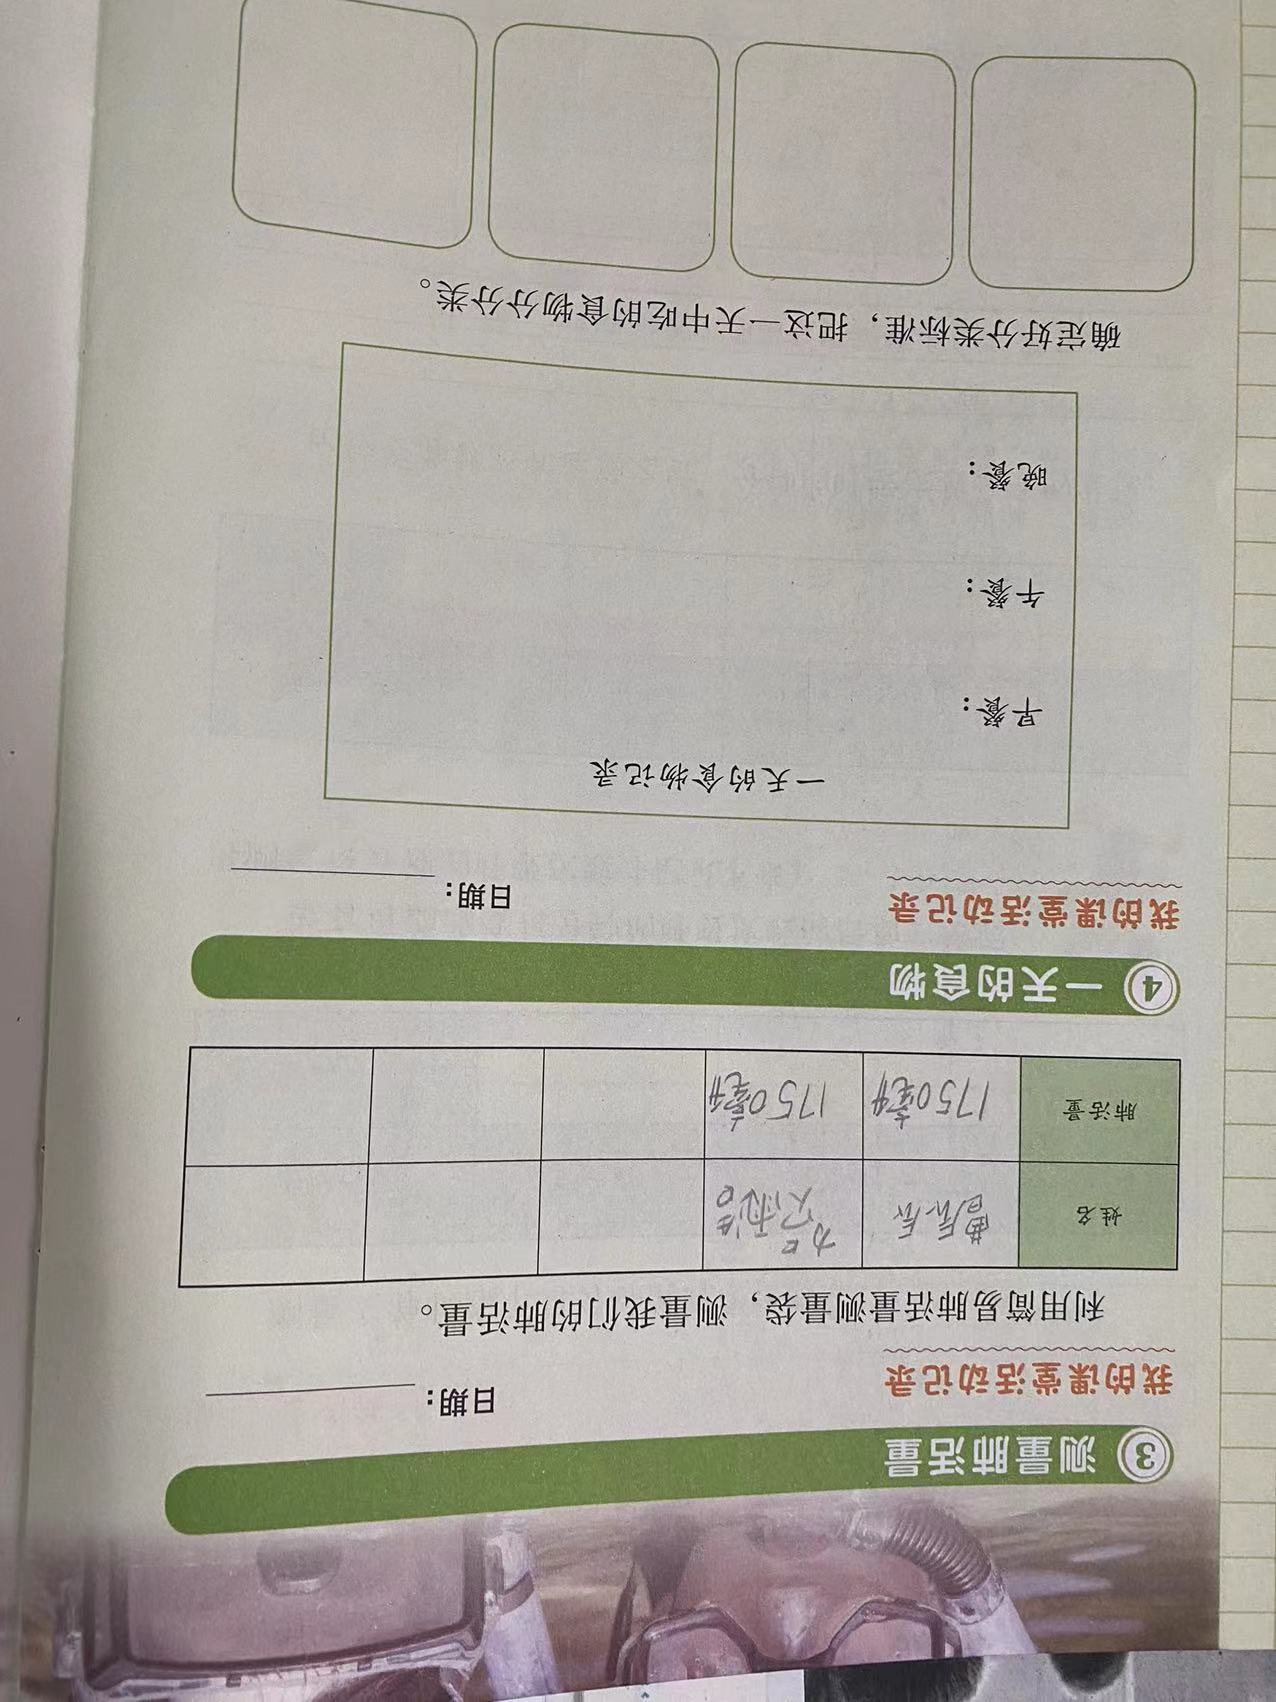 3 测量肺活量
我的课堂活动记录 日期：
利用简易肺活量测量袋，测量我们的肺活量。
姓名 曹辰辰
肺活量 1750毫升 1750毫升
4 一天的食物
我的课堂活动记录 日期：
一天的食物记录
早餐：
午餐：
晚餐：
确定好分类标准，把这一天中吃的食物分分类。